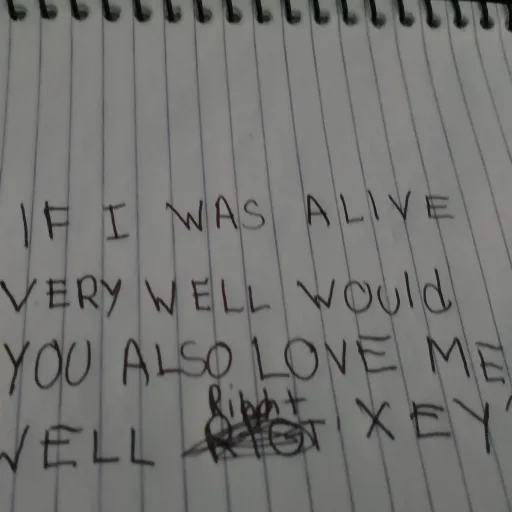 IF I WAS ALIVE
VERY WELL WOUld
YOU ALSO LOVE ME
WELL Right XEY?